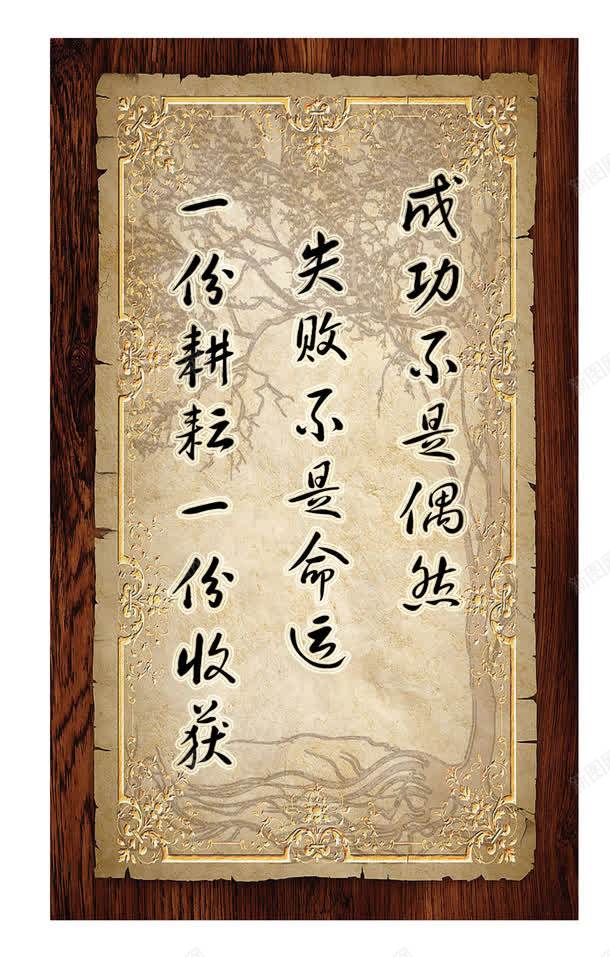 成功不是偶然
失败不是命运
一份耕耘一份收获